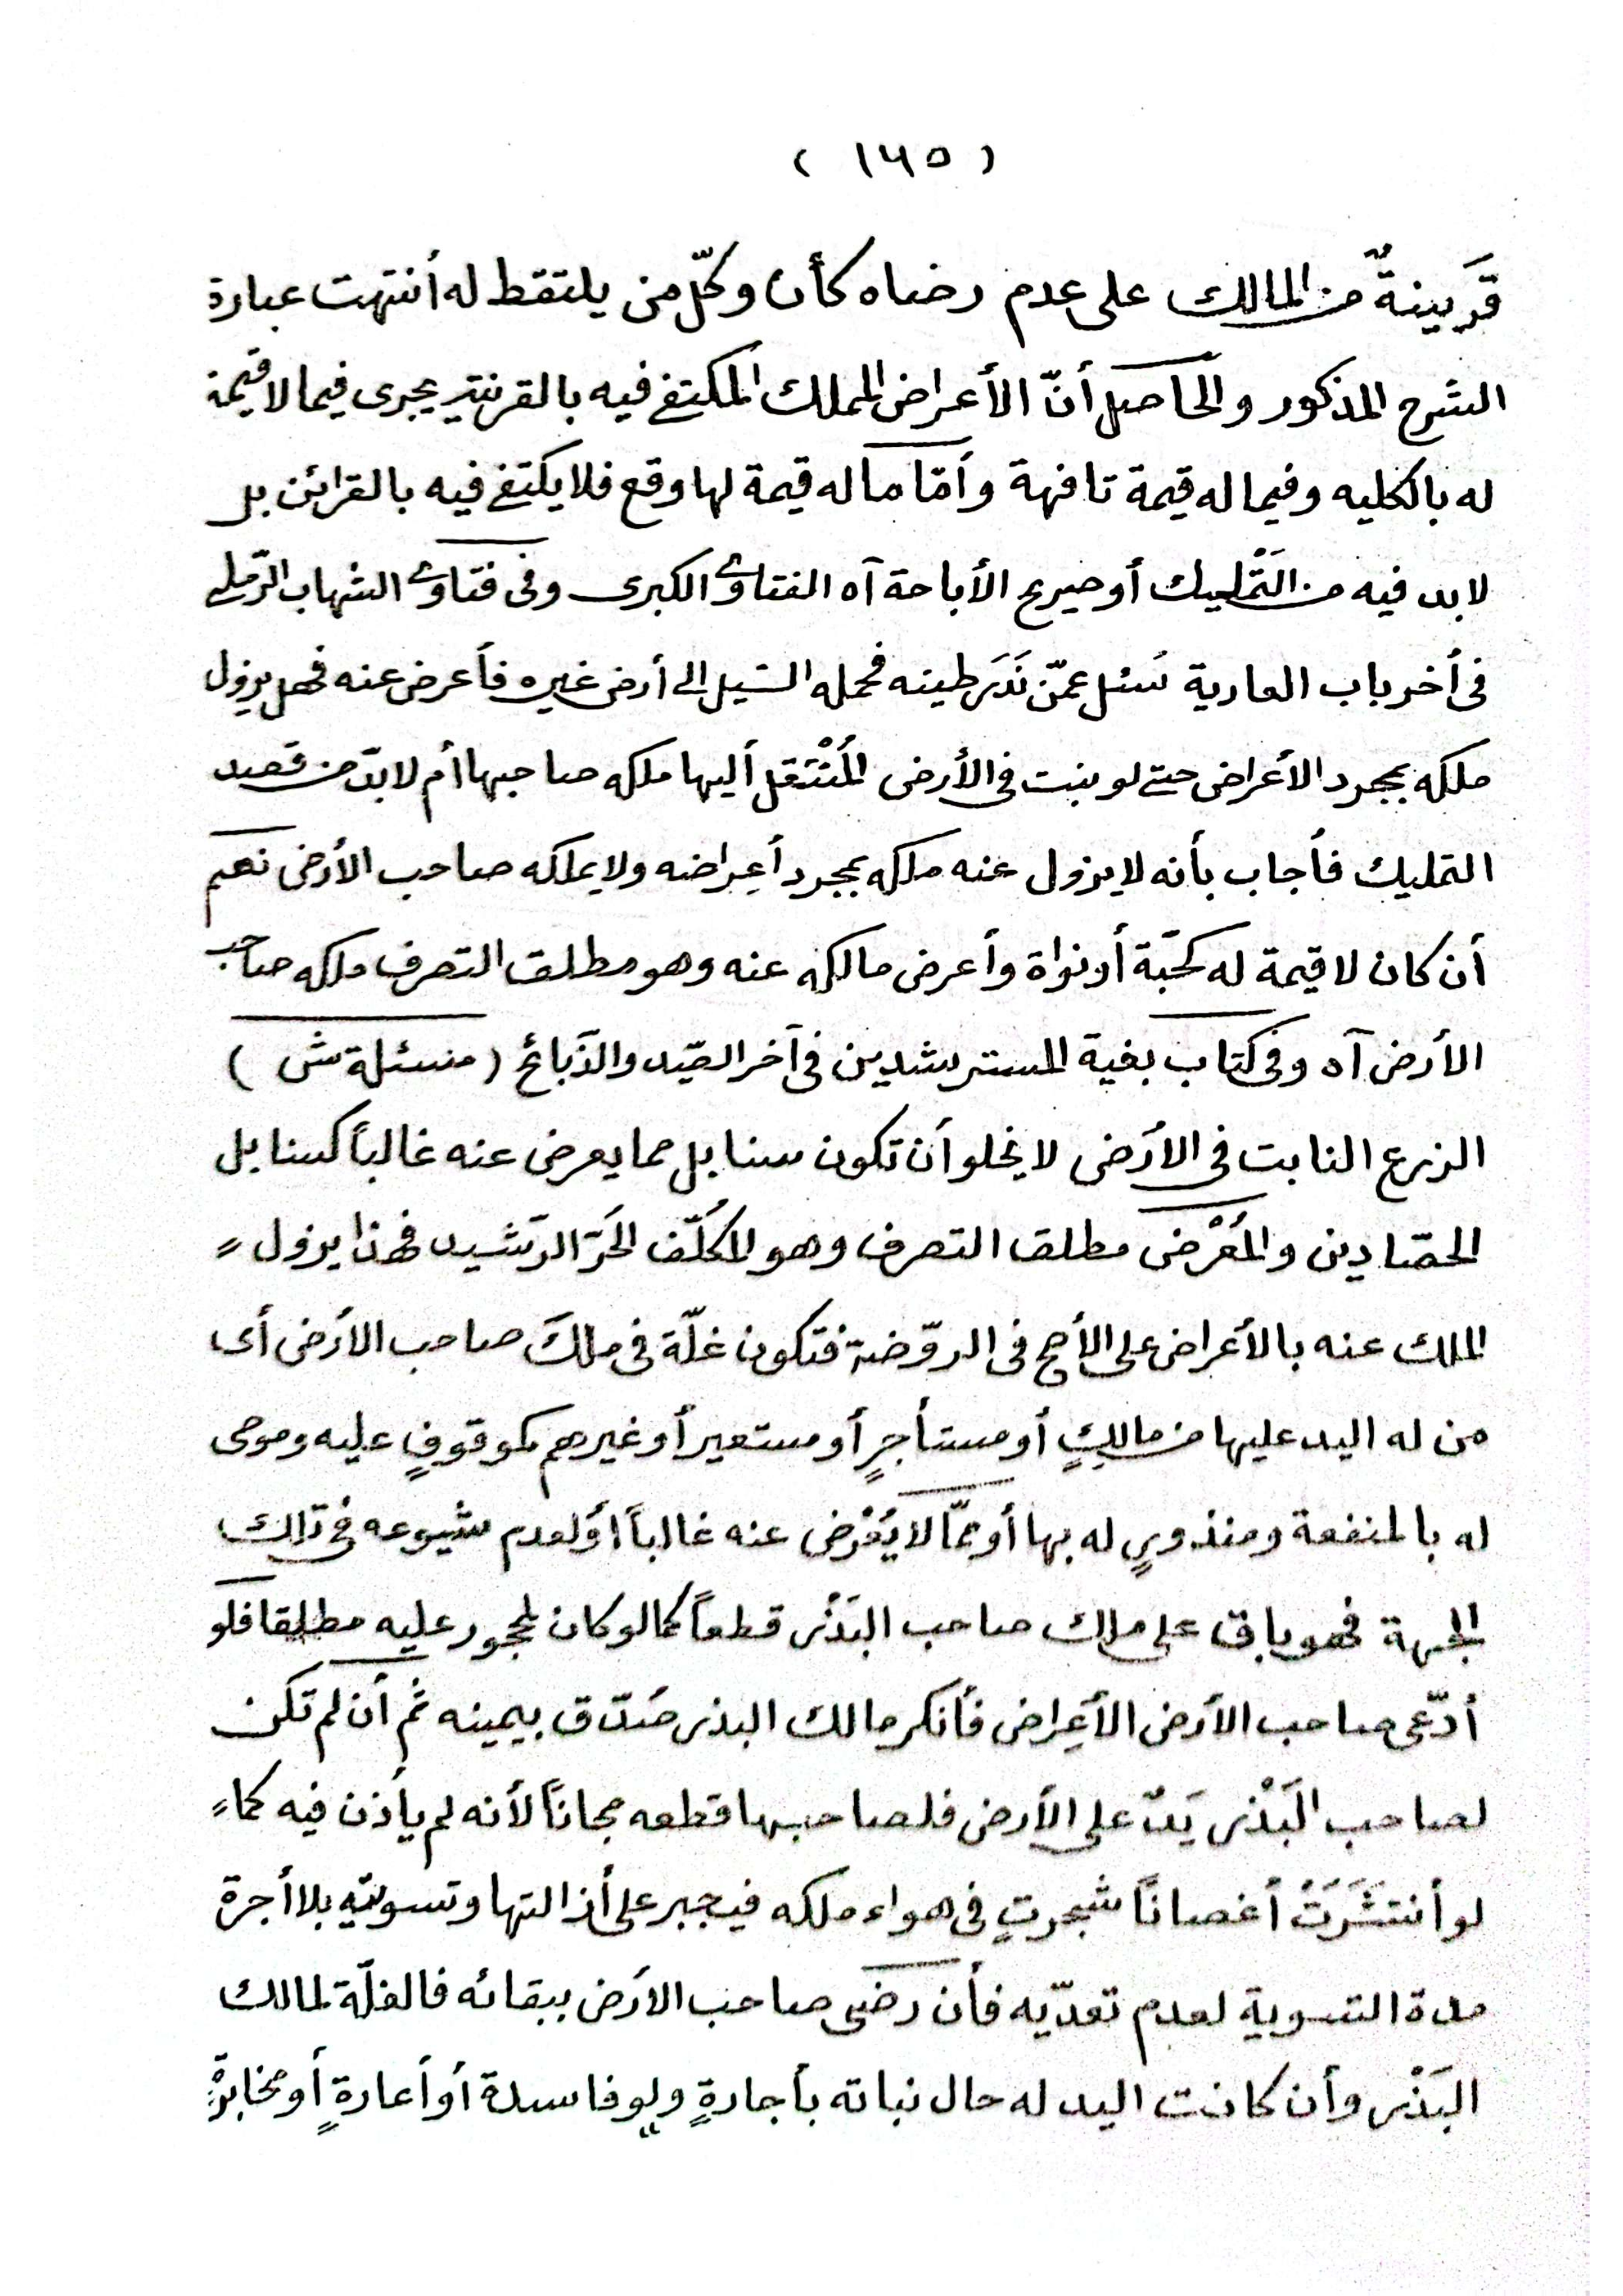 ( ١٦٥ )
قَرِينةٌ من المالك على عدم رضاه كأن وكّل من يلتقط له أنتهت عبارة
الشرح المذكور والحاصل أنّ الأعراض المملك المكتفى فيه بالقرينة يجرى فيما لا قيمة
له بالكليه وفيما له قيمة تافهة وأمّا ما له قيمة لها وقع فلا يكتفى فيه بالقرائن بل
لا بد فيه من التَّمْليك أو صريح الأباحة آه الفتاوى الكبرى وفى فتاوى الشهاب الرّملى
فى أخر باب العارية سُئل عمّن بَذَرَ طينه فحمله السّيل الى أرض غيره فأعرض عنه فهل يزول
ملكه بمجرد الأعراض حتى لو ينبت فى الأرض المُنْتَقل أليها ملكه صاحبها أم لا بدّ من قصد
التمليك فأجاب بأنه لا يزول عنه ملكه بمجرد أعِراضه ولا يملكه صاحب الأرض نعم
أن كان لا قيمة له كحَبّة أو نواة وأعرض مالكه عنه وهو مطلق التصرف ملكه صاحب
الأرض آه وفى كتاب بغية المسترشدين فى آخر الصّيد والذّبائح ( مسئلة ش )
الزرع النابت فى الأرَض لا يخلو أن تكون سنابل مما يعرض عنه غالباً كسنابل
الحصّادين والمُعْرض مطلق التصرف وهو المُكلّف الحَرّ الرّشيد فهذا يزول
الملك عنه بالأعراض على الأصح فى الروّضة فتكون غلّة فى ملكَ صاحب الأرَض أى
من له اليد عليها من مالكٍ أو مستأجرٍ أو مستعير أو غيرهم كموقوفٍ عليه وموصى
له بالمنفعة ومنذورٍ له بها أو ممّا لا يُعْرض عنه غالباً أو لعدم شيوعه فى تلك
الجهة فهو باق على ملك صاحب البَذْر قطعاً كما لو كان لمحجور عليه مطلقا فلو
أدّعى صاحب الأرَض الأعِراض فأنكر مالك البذر صُدّق بيمينه ثم أن لم تكن
لصاحب البَذْر يَدٌ على الأرض فلصاحبها قطعه مجاناً لأنه لم يأذن فيه كما
لو أنتشَرَتْ أغصاناً شجرتٍ فى هواء ملكه فيجبر على أزالتها وتسويته بلا أجرة
مدة التسوية لعدم تعدّيه فأن رضى صاحب الأرَض ببقائه فالغلّة لمالك
البَذْر وأن كانت اليد له حال نباته بأجارةٍ ولو فاسدة أو أعارةٍ أو مخابرةٍ